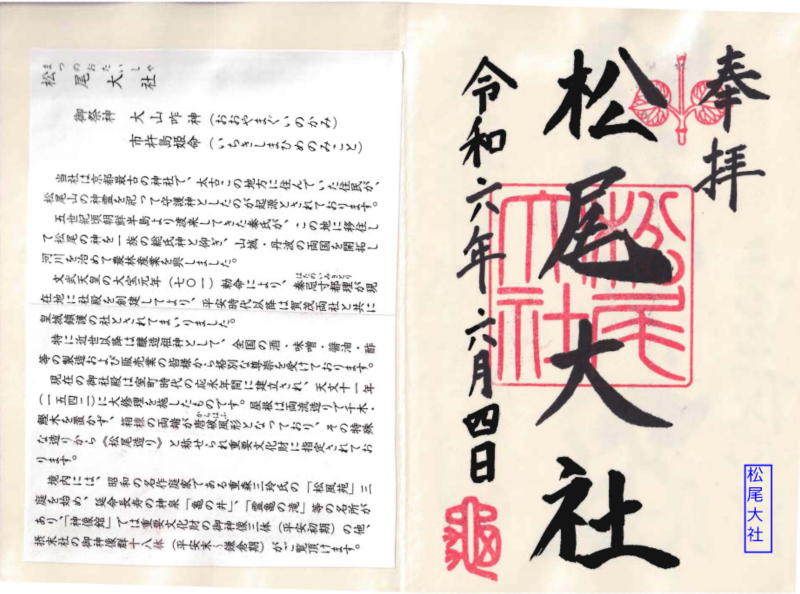 奉拝
松尾大社
令和六年六月四日
松尾大社
松尾大社
まつのおたいしゃ
松尾大社
御祭神 大山咋神(おおやまぐいのかみ)
市杵島姫命(いちきしまひめのみこと)
当社は京都最古の神社で、太古この地方に住んでいた住民が、
松尾山の神霊を祀って守護神としたのが起源とされております。
五世紀頃朝鮮半島より渡来してきた秦氏が、この地に移住し
て松尾の神を一族の総氏神と仰ぎ、山城・丹波の両国を開拓し
河川を治めて農林産業を興しました。
文武天皇の大宝元年(七〇一)勅命により、秦忌寸都理が現
はたのいみきとり
在地に社殿を創建してより、平安時代以降は賀茂両社と共に
皇城鎮護の社とされてまいりました。
特に近世以降は醸造祖神として、全国の酒・味噌・醤油・酢
等の製造および販売業の皆様から格別な尊崇を受けております。
現在の御社殿は室町時代の応永年間に建立され、天文十一年
(一五四二)に大修理を施したものです。屋根は両流造りで千木・
鰹木を置かず、箱棟の両端が唐破風形となっており、その特殊
からはふ
な造りから《松尾造り》と称せられ重要文化財に指定されてお
ります。
境内には、昭和の名作庭家である重森三玲氏の「松風苑」三
庭を始め、延命長寿の神泉「亀の井」、「霊亀の滝」等の名所が
あり「神像館」では重要文化財の御神像三体(平安初期)の他、
摂末社の御神像群十八体(平安末~鎌倉期)がご覧頂けます。